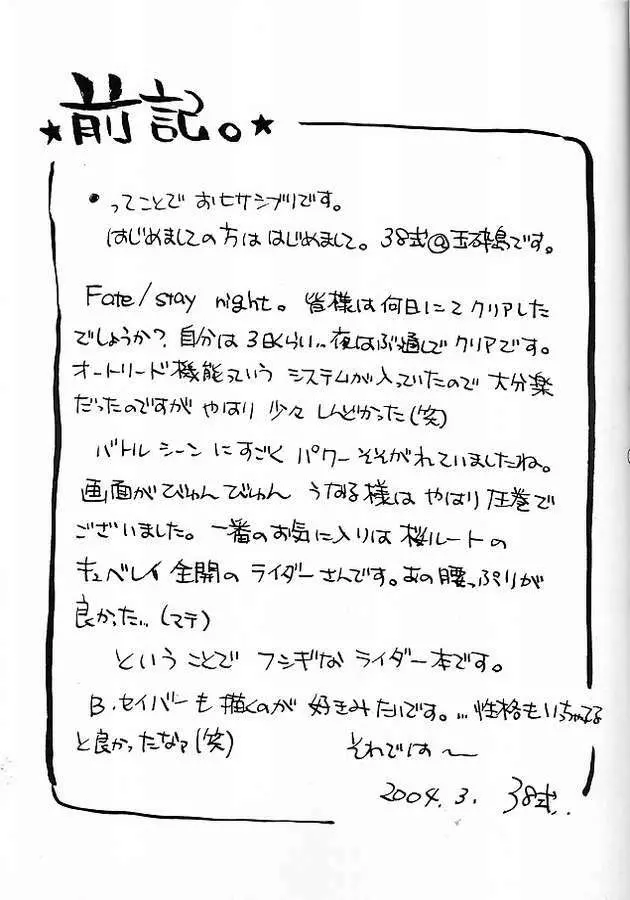 ★前記。★
・ってことで おヒサシブリです。
はじめましての方は はじめまして。38式@玉砕島です。
Fate/stay night。皆様は何日にて クリアした
でしょうか? 自分は 3日くらい.. 夜はぶっ通しで クリアです。
オートリード機能っていう システムが入っていたので 大分楽
だったのですが やはり 少々 しんどかった(笑)
バトルシーン にすごく パワー そそがれていましたね。
画面がびゅんびゅん うなる様は やはり圧巻で
ございました。一番のお気に入りは 桜ルートの
キュベレイ 全開の ライダーさんです。あの腰っぷりが
良かった... (マテ)
ということで フシギな ライダー本です。
B.セイバーも 描くのが 好きみたいです。...性格もいっちゃってる
と良かったなァ(笑) それでは〜
2004. 3. 38式..